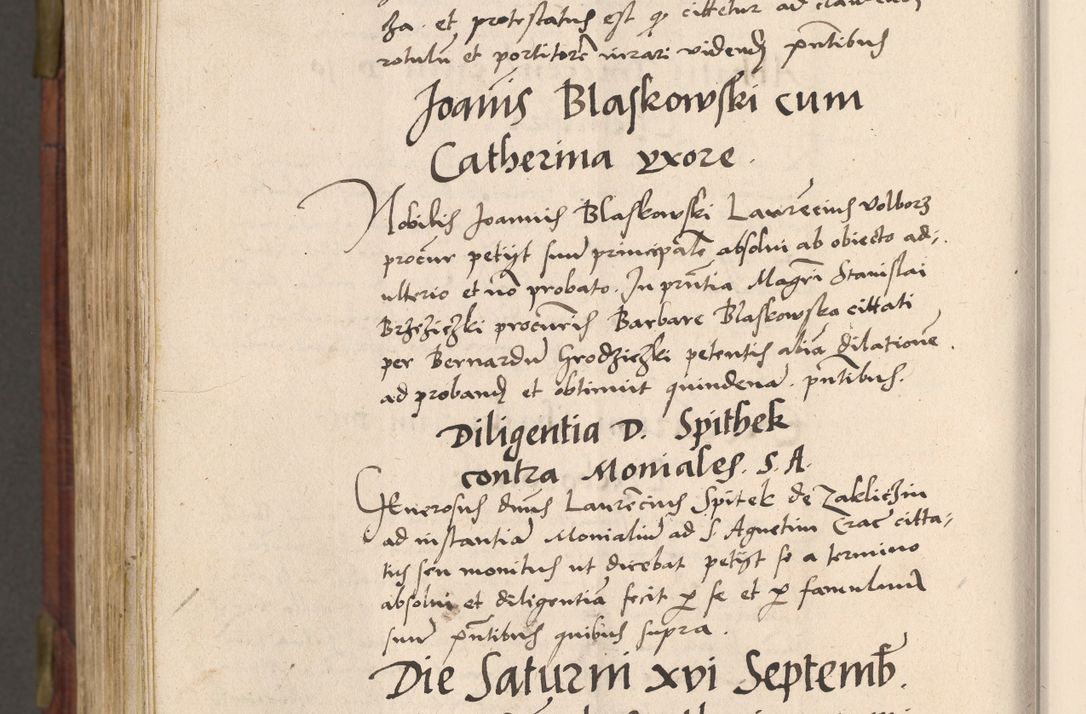 ża. et protestatus est q̨ cittetur ad
rotulū et portitorē iurari videnđ pn̄tibus
Joanis Blaskowski cum
Catherina yxore.
Nobilis Joannis Blaskowski Laurēcius Volborz
procur petijt suū principalē absolui ab obiecto ad-
ulterio et nō probato. In pn̄tia Magrī Stanislai
Brzeziczki procuris Barbare Blaskowska cittati
per Bernardū Grodziczki petentis aliā dilationē.
ad probanđ et obtinuit quindenā. pn̄tibus.
Diligentia D. Spithek
contra Moniales. S. A.
Generosus dnūs Laurēcius Spitek de Zakliczin
ad instantiā Monialiū ad S. Agnetim Crac̄ citta-
tus seu monitus ut dicebat petijt se a termino
absolui et diligentiā fecit p̱ se et p̱ famulum
suū pn̄tibus quibus supra.
Die Saturni xvi Septemb̄.